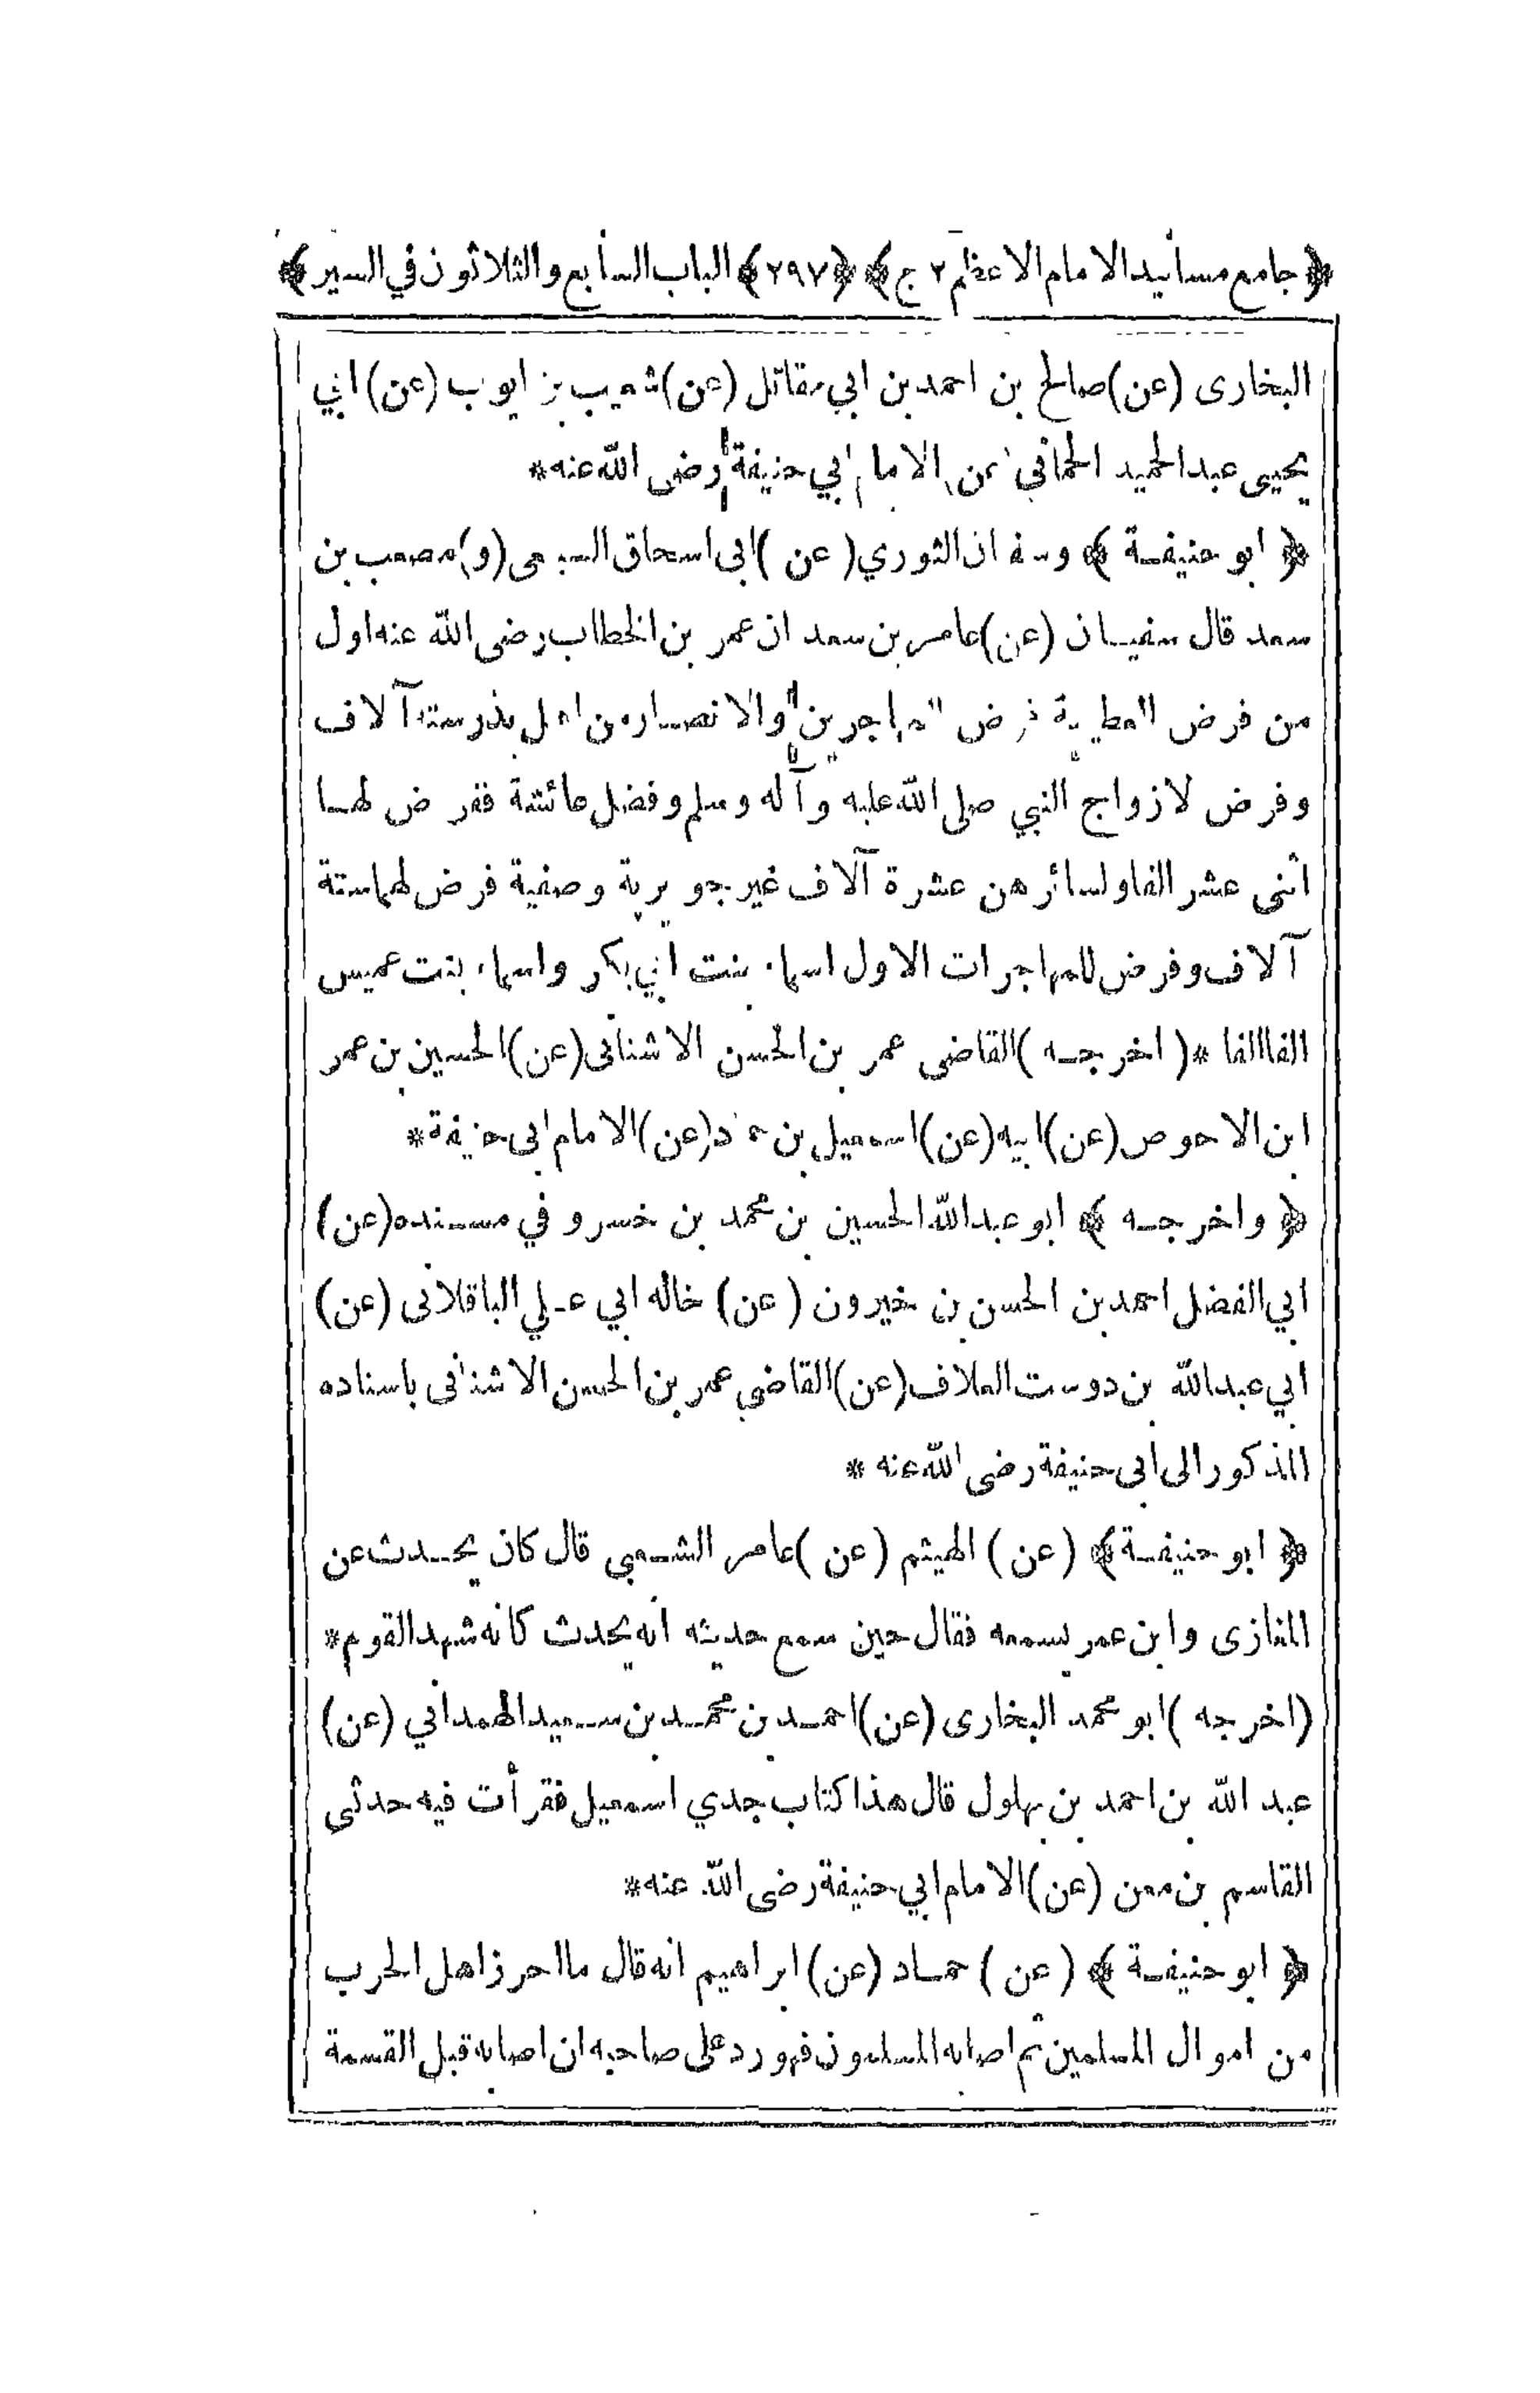 ﴿جامع مسانيد الامام الاعظم ٢ ج﴾ ﴿٢٩٧﴾ الباب السابع والثلاثون في السير﴾
البخارى (عن) صالح بن احمد بن ابي مقاتل (عن) شعيب بن ايوب (عن) ابي
يحيى عبد الحميد الحمانى عن الامام ابي حنيفة رضى الله عنه*
﴿ ابو حنيفة ﴾ وسفيان الثوري (عن) ابى اسحاق السبيعى (و) مصعب بن
سعد قال سفيان (عن) عامر بن سعد ان عمر بن الخطاب رضى الله عنه اول
من فرض العطية فرض للمهاجرين والانصار من اهل بدر ستة آلاف
وفرض لازواج النبي صلى الله عليه وآله وسلم وفضل عائشة ففرض لها
اثنى عشر الفا ولسائرهن عشرة آلاف غير جويرية وصفية فرض لهما ستة
آلاف وفرض للمهاجرات الاول اسماء بنت ابي بكر واسماء بنت عميس
الفا الفا *(اخرجه) القاضى عمر بن الحسن الاشنانى (عن) الحسين بن عمر
ابن الاحوص (عن) ابيه (عن) اسمعيل بن حماد (عن) الامام ابى حنيفة*
﴿ واخرجه ﴾ ابو عبد الله الحسين بن محمد بن خسرو في مسنده (عن)
ابي الفضل احمد بن الحسن بن خيرون (عن) خاله ابي علي الباقلانى (عن)
ابي عبد الله بن دوست العلاف (عن) القاضى عمر بن الحسن الاشنانى باسناده
المذكور الى ابى حنيفة رضى الله عنه *
﴿ ابو حنيفة ﴾ (عن) الهيثم (عن) عامر الشعبي قال كان يحدث عن
المغازى وابن عمر يسمعه فقال حين سمع حديثه انه يحدث كانه شهد القوم*
(اخرجه) ابو محمد البخارى (عن) احمد بن محمد بن سعيد الهمداني (عن)
عبد الله بن احمد بن بهلول قال هذا كتاب جدي اسمعيل فقرأت فيه حدثنى
القاسم بن معن (عن) الامام ابي حنيفة رضى الله عنه*
﴿ ابو حنيفة ﴾ (عن) حماد (عن) ابراهيم انه قال ما احرز اهل الحرب
من اموال المسلمين ثم اصابه المسلمون فهو رد على صاحبه ان اصابه قبل القسمة